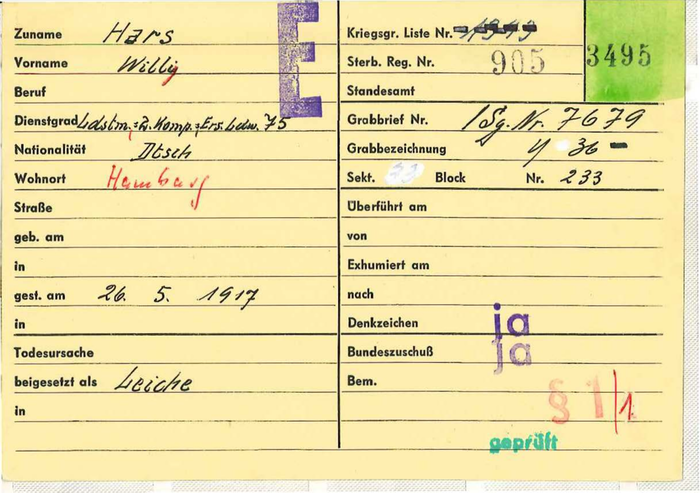 E
Zuname Hars
Vorname Willy
Beruf
Dienstgrad Ldstm. 2. Komp. Ers. Ldw. 75
Nationalität Dtsch
Wohnort Hamburg
Straße
geb. am
in
gest. am 26. 5. 1917
in
Todesursache
beigesetzt als Leiche
in
Kriegsgr. Liste Nr.
Sterb. Reg. Nr. 905
3495
Standesamt
Grabbrief Nr. 1Sg. Nr. 7679
Grabbezeichnung y 36 -
Sekt. Block Nr. 233
Überführt am
von
Exhumiert am
nach
Denkzeichen ja
Bundeszuschuß ja
Bem.
§ 1/1
geprüft